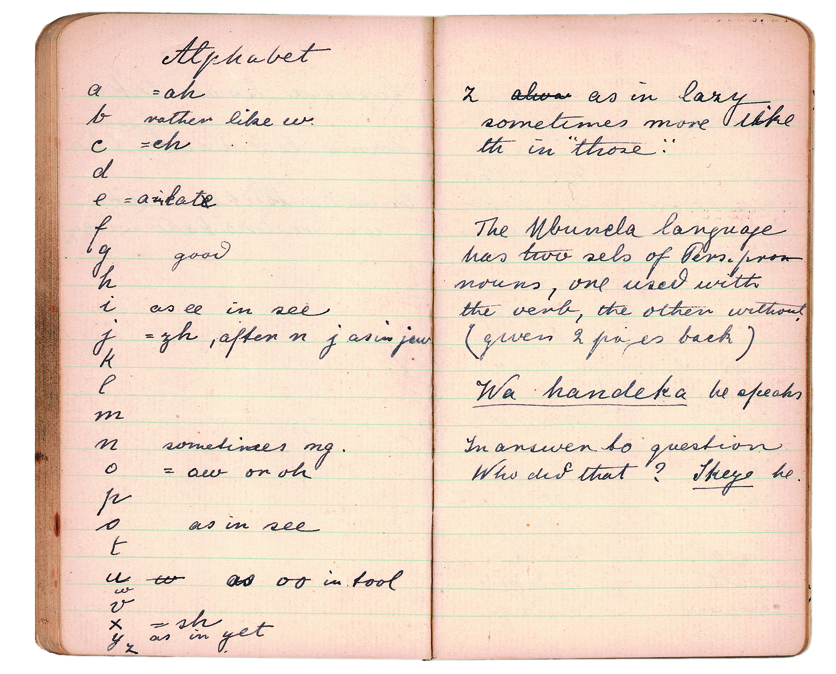 Alphabet
a =ah
b rather like w.
c =ch
d
e = a in late
f
g good
h
i as ee in see
j = zh, after n j as in jew
k
l
m
n sometimes ng.
o = aw or oh
p
s as in see
t
u w as oo in tool
w
v
x = sh
y as in yet
z
z as in lazy
sometimes more like
th in "those".
The Mbunda language
has two sets of Pers. pron
nouns, one used with
the verb, the other without
(given 2 pages back)
Wa handeka he speaks
In answer to question
Who did that? Ikeye he.